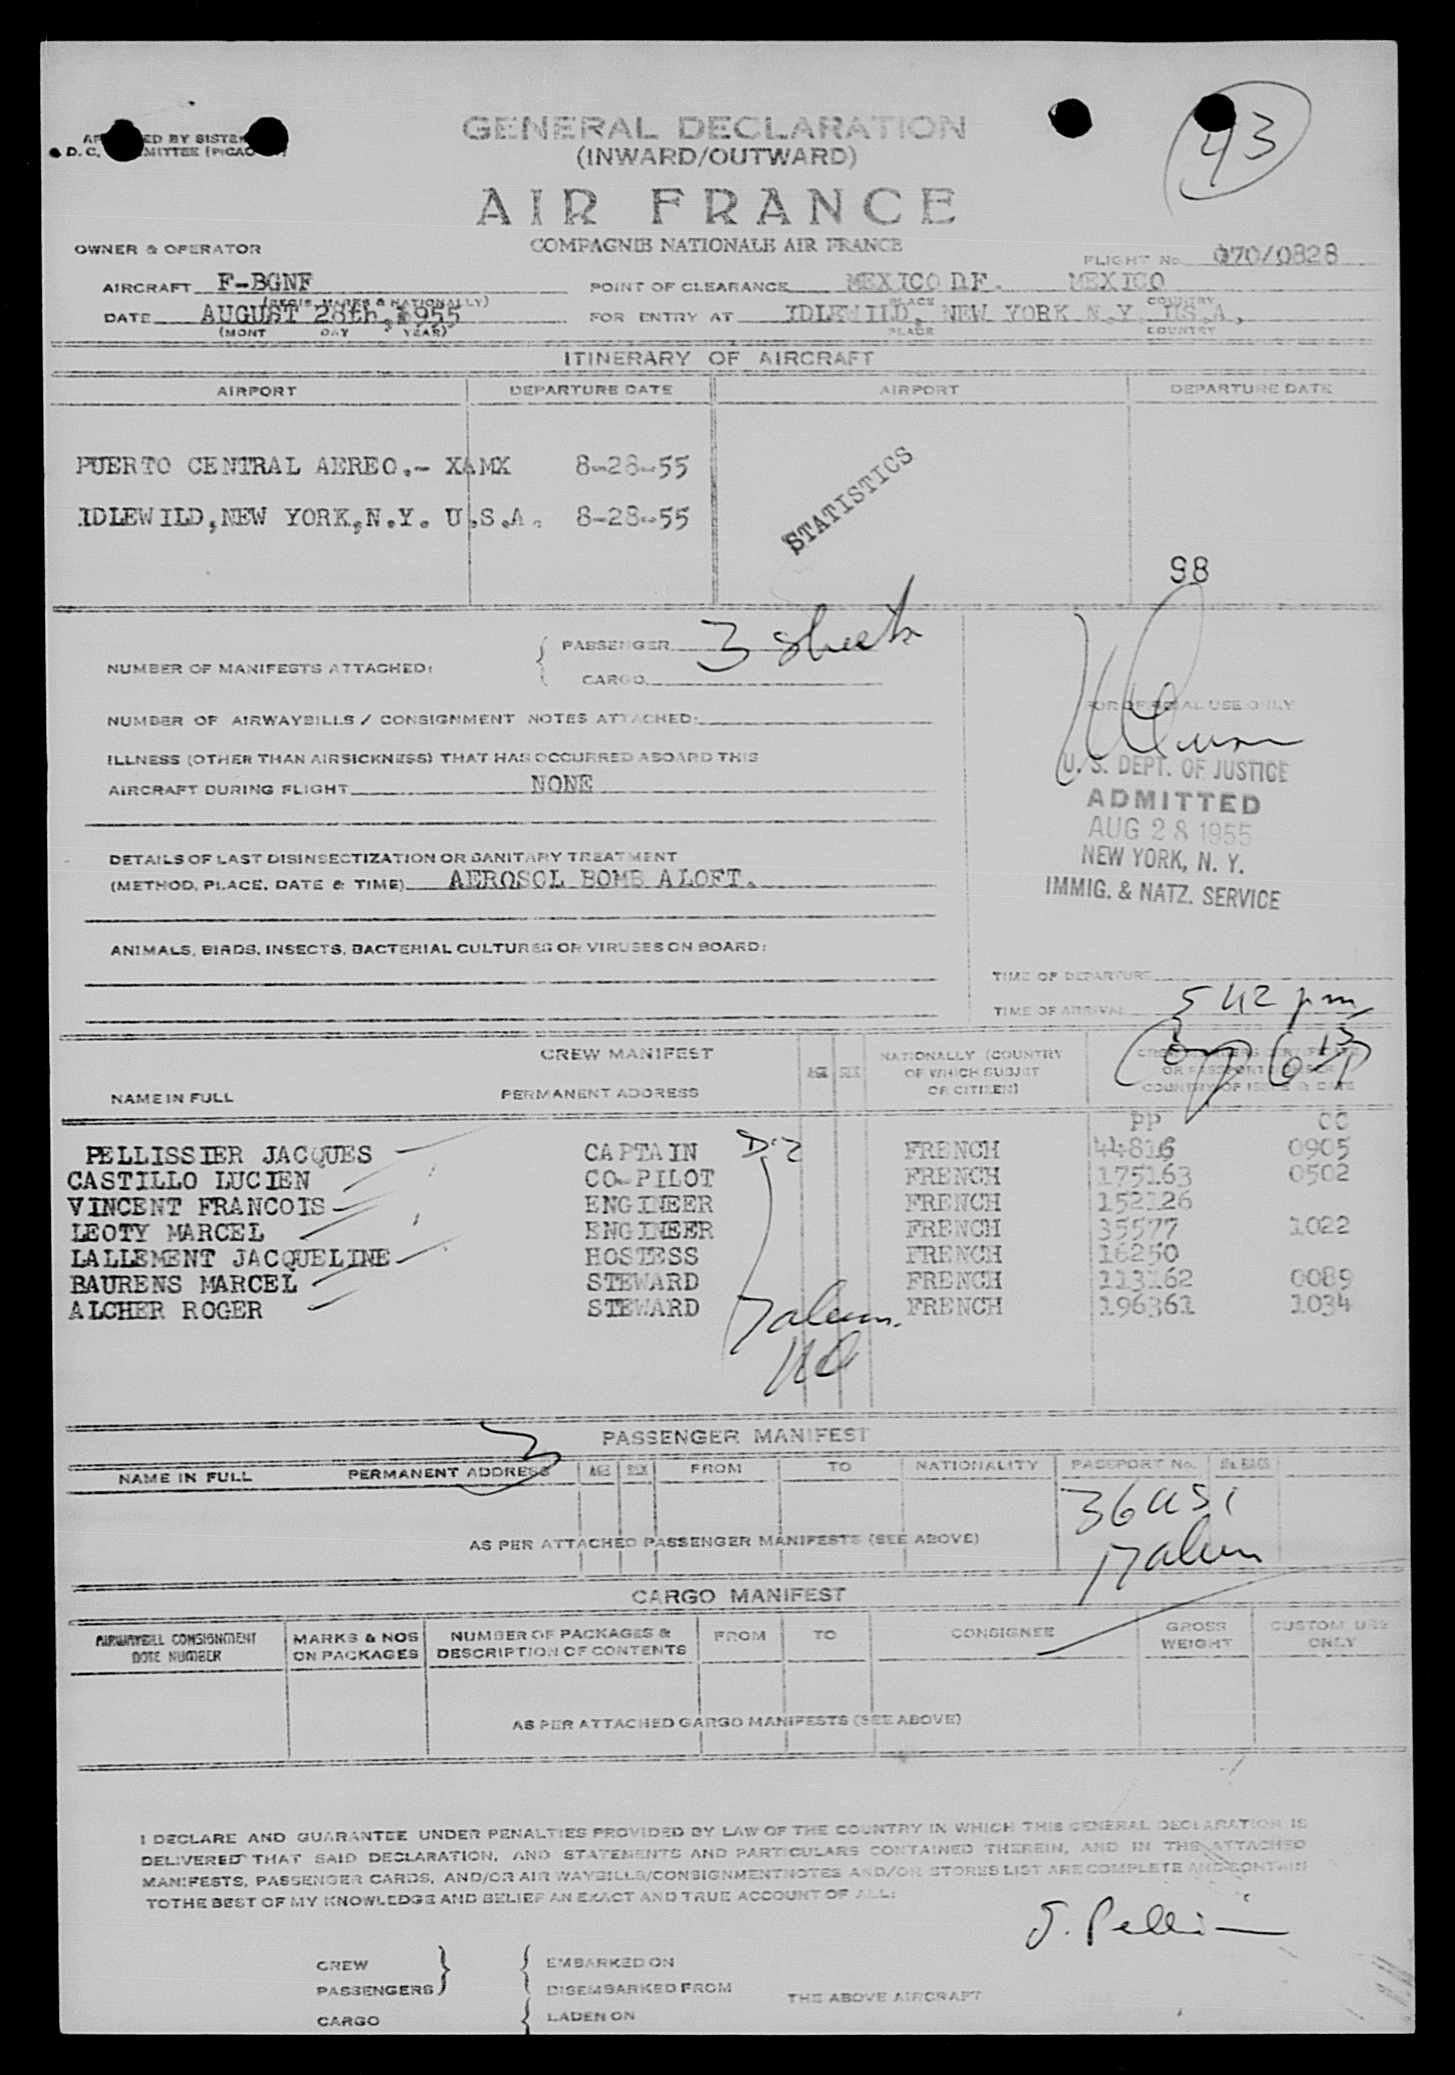 GENERAL DECLARATION
(INWARD/OUTWARD)
43
ED BY SISTER
D. C.
AIR FRANCE
OWNER & OPERATOR
COMPAGNIE NATIONALE AIR FRANCE
FLIGHT No. 070/0828
AIRCRAFT F-BGNF
POINT OF CLEARANCE MEXICO D.F. MEXICO
(REGIS. MARKS & NATIONALLY)
PLACE COUNTRY
DATE AUGUST 28th, 1955
FOR ENTRY AT IDLEWILD, NEW YORK N.Y. U.S.A.,
(MONT DAY YEAR)
PLACE COUNTRY
ITINERARY OF AIRCRAFT
AIRPORT DEPARTURE DATE AIRPORT DEPARTURE DATE
PUERTO CENTRAL AEREO.- XAMX 8-28-55
IDLEWILD,NEW YORK,N.Y. U.S.A. 8-28-55
STATISTICS
98
NUMBER OF MANIFESTS ATTACHED:
PASSENGER 3 sheets
CARGO
NUMBER OF AIRWAYBILLS / CONSIGNMENT NOTES ATTACHED:
FOR OFFICIAL USE ONLY
ILLNESS (OTHER THAN AIRSICKNESS) THAT HAS OCCURRED ABOARD THIS
AIRCRAFT DURING FLIGHT NONE
U. S. DEPT. OF JUSTICE
ADMITTED
AUG 28 1955
NEW YORK, N. Y.
IMMIG. & NATZ. SERVICE
DETAILS OF LAST DISINSECTIZATION OR SANITARY TREATMENT
(METHOD, PLACE, DATE & TIME) AEROSOL BOMB ALOFT.
ANIMALS, BIRDS, INSECTS, BACTERIAL CULTURES OR VIRUSES ON BOARD:
TIME OF DEPARTURE
TIME OF ARRIVAL 5 42 pm
CREW MANIFEST
NAME IN FULL PERMANENT ADDRESS AGE SEX
NATIONALLY (COUNTRY
OF WHICH SUBJET
OR CITIZEN)
COUNTRY OF ISSUE & DATE
PP CC
PELLISSIER JACQUES CAPTAIN D-2 FRENCH 44816 0905
CASTILLO LUCIEN CO-PILOT FRENCH 175163 0502
VINCENT FRANCOIS ENGINEER FRENCH 152126
LEOTY MARCEL ENGINEER FRENCH 35577 1022
LALLEMENT JACQUELINE HOSTESS FRENCH 16250
BAURENS MARCEL STEWARD FRENCH 113162 0089
ALCHER ROGER STEWARD FRENCH 196361 1034
7 alien.
PASSENGER MANIFEST
3
NAME IN FULL PERMANENT ADDRESS AGE SEX FROM TO NATIONALITY PASSPORT No. No. BAGS
36 USC
17 alien
AS PER ATTACHED PASSENGER MANIFESTS (SEE ABOVE)
CARGO MANIFEST
AIRWAYBILL CONSIGNMENT NOTE NUMBER
MARKS & NOS ON PACKAGES
NUMBER OF PACKAGES & DESCRIPTION OF CONTENTS
FROM TO CONSIGNEE
GROSS WEIGHT
CUSTOM USE ONLY
AS PER ATTACHED CARGO MANIFESTS (SEE ABOVE)
I DECLARE AND GUARANTEE UNDER PENALTIES PROVIDED BY LAW OF THE COUNTRY IN WHICH THIS GENERAL DECLARATION IS
DELIVERED THAT SAID DECLARATION, AND STATEMENTS AND PARTICULARS CONTAINED THEREIN, AND IN THE ATTACHED
MANIFESTS, PASSENGER CARDS, AND/OR AIR WAYBILLS/CONSIGNMENTNOTES AND/OR STORES LIST ARE COMPLETE AND CONTAIN
TOTHE BEST OF MY KNOWLEDGE AND BELIEF AN EXACT AND TRUE ACCOUNT OF ALL:
CREW EMBARKED ON
PASSENGERS DISEMBARKED FROM THE ABOVE AIRCRAFT
CARGO LADEN ON